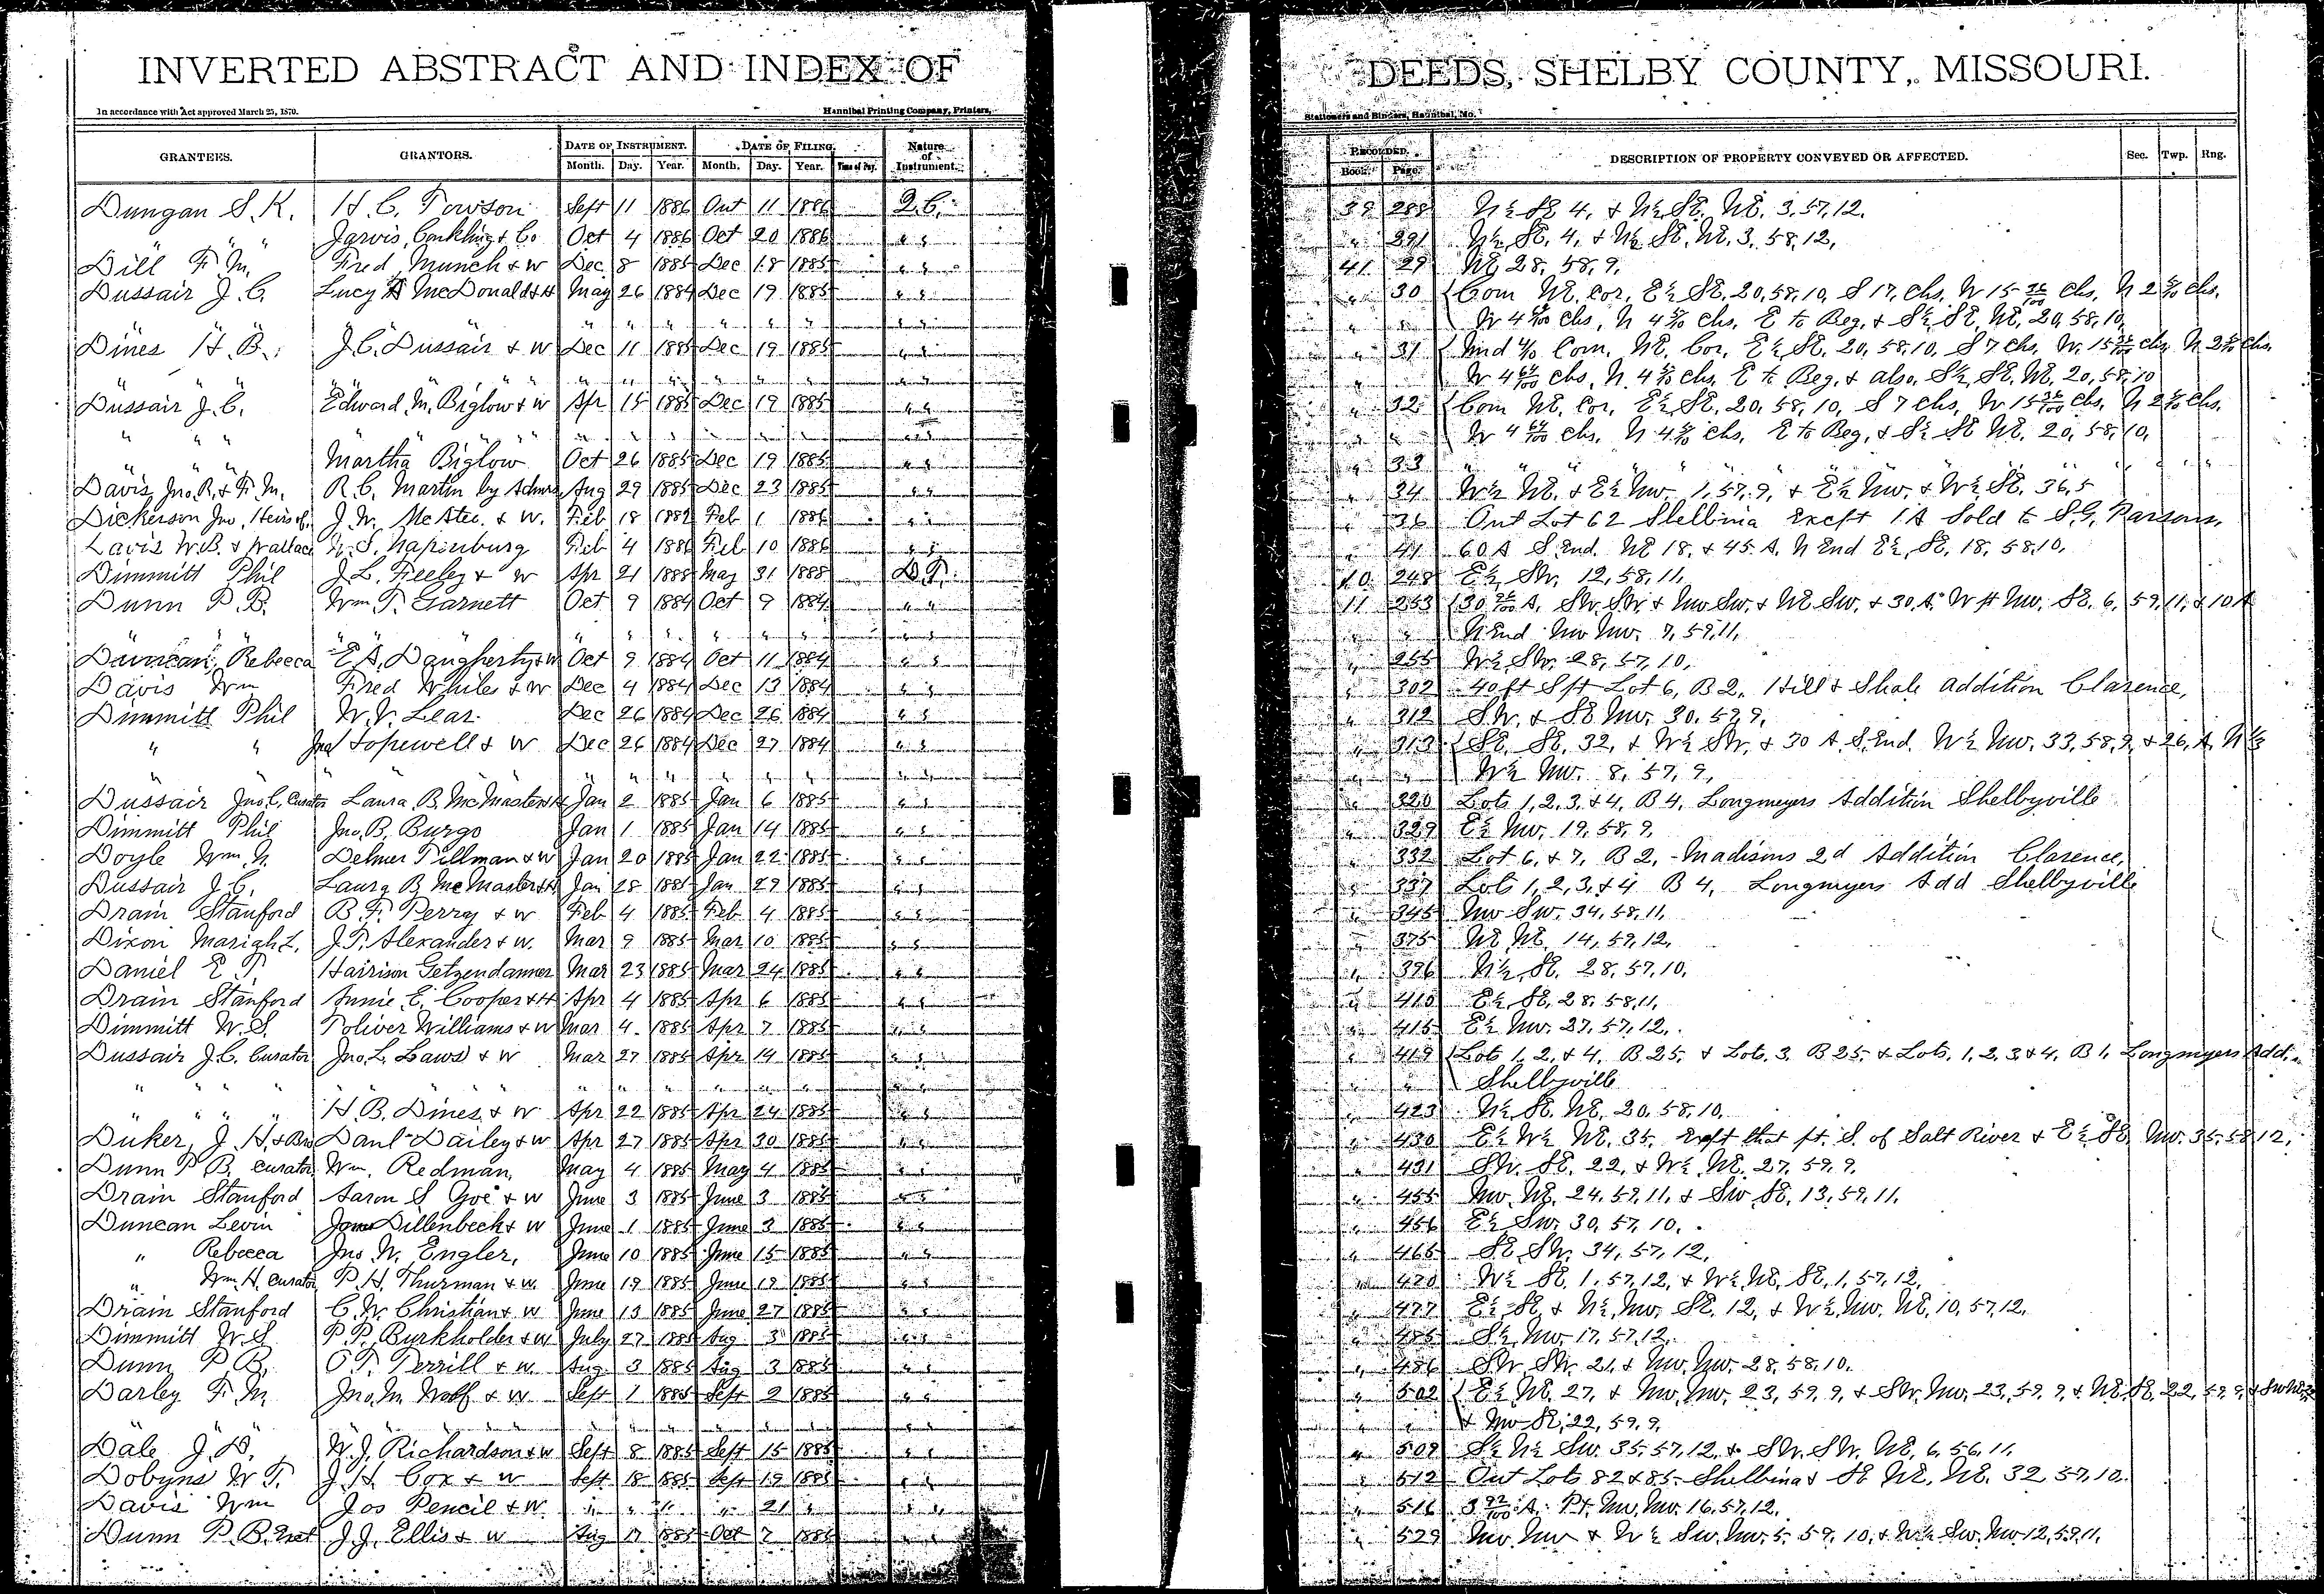 INVERTED ABSTRACT AND INDEX OF DEEDS, SHELBY COUNTY, MISSOURI.
In accordance with Act approved March 25, 1870. Hannibal Printing Company, Printers, Stationers and Binders, Hannibal, Mo.
GRANTEES. GRANTORS. DATE OF INSTRUMENT. DATE OF FILING. Nature of Instrument. RECORDED. DESCRIPTION OF PROPERTY CONVEYED OR AFFECTED. Sec. Twp. Rng.
Month. Day. Year. Month. Day. Year. Time of Day. Book. Page.
Dungan S. K. H. C. Towson Sept 11 1886 Oct 11 1886 Q.C. 39 288 N½ SE 4, & N½ SE, NE, 3, 57, 12,
" " " Jarvis, Conkling & Co Oct 4 1886 Oct 20 1886 " " " 291 N½ SE, 4, & N½ SE, NE, 3, 58, 12,
Dill F. M. Fred Munch & W Dec 8 1885 Dec 18 1885 " " 41 29 NE, 28, 58, 9,
Dussair J. C. Lucy A McDonald & H May 26 1884 Dec 19 1885 " " " 30 Com NE, Cor, E½ SE, 20, 58, 10, S 17, Chs, W 15 36/100 Chs,
" " " " " " " " " W 4 Chs, N 4 Chs, E to Beg, & S½ SE, NE, 20, 58, 10,
Dines H. B. J. C. Dussair & W Dec 11 1885 Dec 19 1885 " " " 31 Com, NE, Cor, E½ SE, 20, 58, 10, S 7 Chs, W, 15 36/100 chs,
" " " " " " " W 4 64/100 chs, N, 4 chs, E to Beg, & also, S½, SE, NE, 20, 58, 10
Dussair J. C. Edward M. Biglow & W Apr 15 1885 Dec 19 1885 " " " 32 Com NE, Cor, E½ SE, 20, 58, 10, S 7 Chs, W 15 36/100 Chs,
" " " " " " W 4 64/100 chs, N 4 chs, E to Beg, & S½ SE NE, 20, 58, 10,
" " " Martha Biglow Oct 26 1885 Dec 19 1885 " " " 33 " " " "
Davis Jno. R. & F. M. R. C. Martin by Admr Aug 29 1885 Dec 23 1885 " " " 34 W½ NE, & E½ NW, 1, 57, 9, & E½ NW, & W½ SE, 36, 5
Dickerson Jno, Heirs of J. W. McAtee & W. Feb 18 1882 Feb 1 1886 " 36 Out Lot 62 Shelbina Except 1 A Sold to S. G. Parsons,
Davis W. B. & Wallace W. S. Napenburg Feb 4 1886 Feb 10 1886 " " " 41 60 A S. End, NE 18, & 45 A, N End E½, SE, 18, 58, 10,
Dimmitt Phil J. L. Feeley & W Apr 21 1888 May 31 1888 D. T. 10 248 E½ SW, 12, 58, 11,
Dunn P. B. Wm T. Garnett Oct 9 1884 Oct 9 1884 " " 11 253 A, SW, SW, & NW SW, & NE SW, & 30 A, W pt NW, SE, 6, 59, 11, & 10 A
" " " " " " " " " N End NW NW, 7, 59, 11,
Duncan, Rebecca E. A. Daugherty & W Oct 9 1884 Oct 11 1884 " " " 255 W½ SW, 28, 57, 10,
Davis Wm Fred Whiles & W Dec 4 1884 Dec 13 1884 " " " 302 40 ft S pt Lot 6, B 2, Hill & Shale addition Clarence,
Dimmitt Phil W. V. Lear Dec 26 1884 Dec 26 1884 " " " 312 SW, & SE NW, 30, 59, 9,
" " Jno Hopewell & W Dec 26 1884 Dec 27 1884 " " " 313 SE, SE, 32, & W½ SW, & 30 A, S. End, W½ NW, 33, 58, 9, & 26, A, N ½
" " " " " " " " " W½ NW, 8, 57, 9,
Dussair Jno. C, Curator Laura B McMasters & H Jan 2 1885 Jan 6 1885 " " " 320 Lots 1, 2, 3, & 4, B 4, Longmeyers Addition Shelbyville
Dimmitt Phil Jno. B. Burgo Jan 1 1885 Jan 14 1885 " " " 329 E½ NW, 19, 58, 9,
Doyle Wm. N. Delmer Tillman & W Jan 20 1885 Jan 22 1885 " " " 332 Lot 6, & 7, B 2, Madisons 2d Addition Clarence,
Dussair J. C. Laura B McMasters & H Jan 28 1885 Jan 29 1885 " " " 337 Lots 1, 2, 3, & 4 B 4, Longmeyers Add Shelbyville
Drain Stanford B. F. Perry & W Feb 4 1885 Feb 4 1885 " " " 345 NW SW, 34, 58, 11,
Dixon Mariah L. J. T. Alexander & W. Mar 9 1885 Mar 10 1885 " " " 375 NE NE, 14, 59, 12,
Daniel E. T. Harrison Getzendanner Mar 23 1885 Mar 24 1885 " " " 396 N½, SE, 28, 57, 10,
Drain Stanford Annie E. Cooper & H Apr 4 1885 Apr 6 1885 " " " 410 E½ SE, 28, 58, 11,
Dimmitt W. S. Toliver Williams & W Mar 4 1885 Apr 7 1885 " " " 415 E½ NW, 27, 57, 12,
Dussair J. C. Curator Jno. L. Laws & W Mar 27 1885 Apr 14 1885 " " " 419 Lots 1, 2, & 4, B 25, & Lot, 3, B 25, & Lots, 1, 2, 3 & 4, B 1, Longmeyers Add,
" " " " " " " " " Shelbyville
" " " " H. B. Dines & W Apr 22 1885 Apr 24 1885 " " " 423 N½ SE, NE, 20, 58, 10,
Duker, J. H. & Bro Danl Dailey & W Apr 27 1885 Apr 30 1885 " " " 430 E½ W½ NE, 35, Except that pt, S. of Salt River & E½ SE, NW, 35, 58, 12,
Dunn P B, Curator Wm. Redman, May 4 1885 May 4 1885 " " " 431 SW, SE, 22, & W½ NE, 27, 59, 9,
Drain Stanford Aaron S Goe & W June 3 1885 June 3 1885 " " " 455 NW, NE, 24, 59, 11, & SW SE, 13, 59, 11,
Duncan Levin Dillenbeck & W June 1 1885 June 3 1885 " " " 456 E½ SW, 30, 57, 10,
" Rebecca Jno W. Engler, June 10 1885 June 15 1885 " " " 465 SE SW, 34, 57, 12,
" Wm H, Curator P. H. Thurman & W. June 19 1885 June 19 1885 " " " 470 W½ SE, 1, 57, 12, & W½ NE, SE, 1, 57, 12,
Drain Stanford C. W. Christian & W June 13 1885 June 27 1885 " " " 477 E½ SE, & N½, NW, SE, 12, & W½, NW, NE, 10, 57, 12,
Dimmitt W. S. P. P. Burkholder & W July 27 1885 Aug 3 1885 " " " 485 S½ NW 17, 57, 12,
Dunn P B. O. T. Terrill & W. Aug 3 1885 Aug 3 1885 " " " 486 SW SW, 21, & NW, NW, 28, 58, 10,
Darley F. M. Jno. M. Wolf & W Sept 1 1885 Sept 2 1885 " " " 502 E½ NE, 27, & NW, NW, 23, 59, 9, & SW, NW, 23, 59, 9, & NE, SE, 22, 59, 9,
" " " " " " " & NW SE, 22, 59, 9,
Dale J. D. W. J. Richardson & W Sept 8 1885 Sept 15 1885 " " " 509 S½ N½ SW, 35, 57, 12, & SW, SW, NE, 6, 56, 11,
Dobyns W. T. J. H. Cox & W Sept 18 1885 Sept 19 1885 " " " 512 Out Lots 82 & 85 Shelbina & SE NE, NE, 32, 57, 10,
Davis Wm Jos Pencil & W " " " " 21 " " " " 516 3 92/100 A. Pt, NW, NW, 16, 57, 12,
Dunn P. B. J. J. Ellis & W Aug 17 1885 Oct 7 1885 " 529 NW NW & W½ SW, NW, 5, 59, 10, & W½ SW, NW 12, 59, 11,